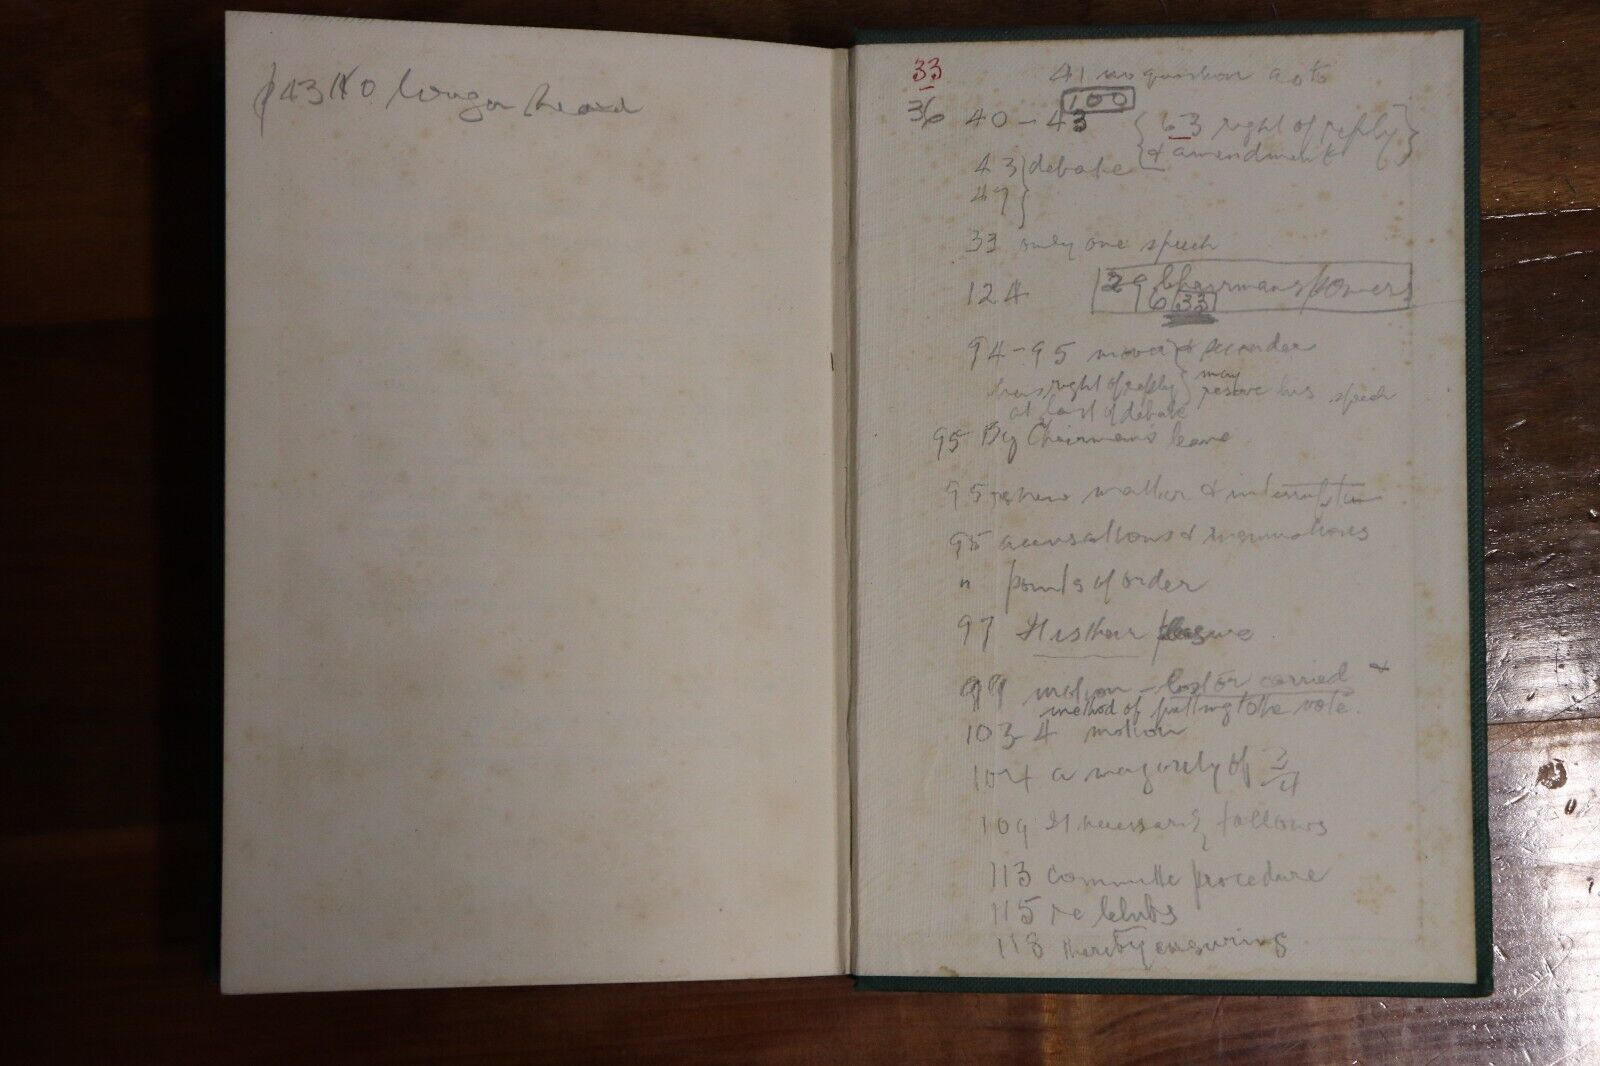 p 43 No longer heard
33
41 no question as to
100
36 40 - 43 { 63 right of reply }
43 } debate { & amendment }
47 }
33 only one speech
124 29 Chairmans powers
96 33
94-95 mover } & seconder
has right of reply } may reserve his speech
at last of debate
95 By Chairman's leave
95 new matter & interruption
95 accusations & insinuations
" points of order
97 It is their pleasure
99 motion - lost or carried &
method of putting to the vote.
103-4 motion
104 a majority of 3/4
109 It necessarily follows
113 committe procedure
115 re Clubs
118 thereby ensuring